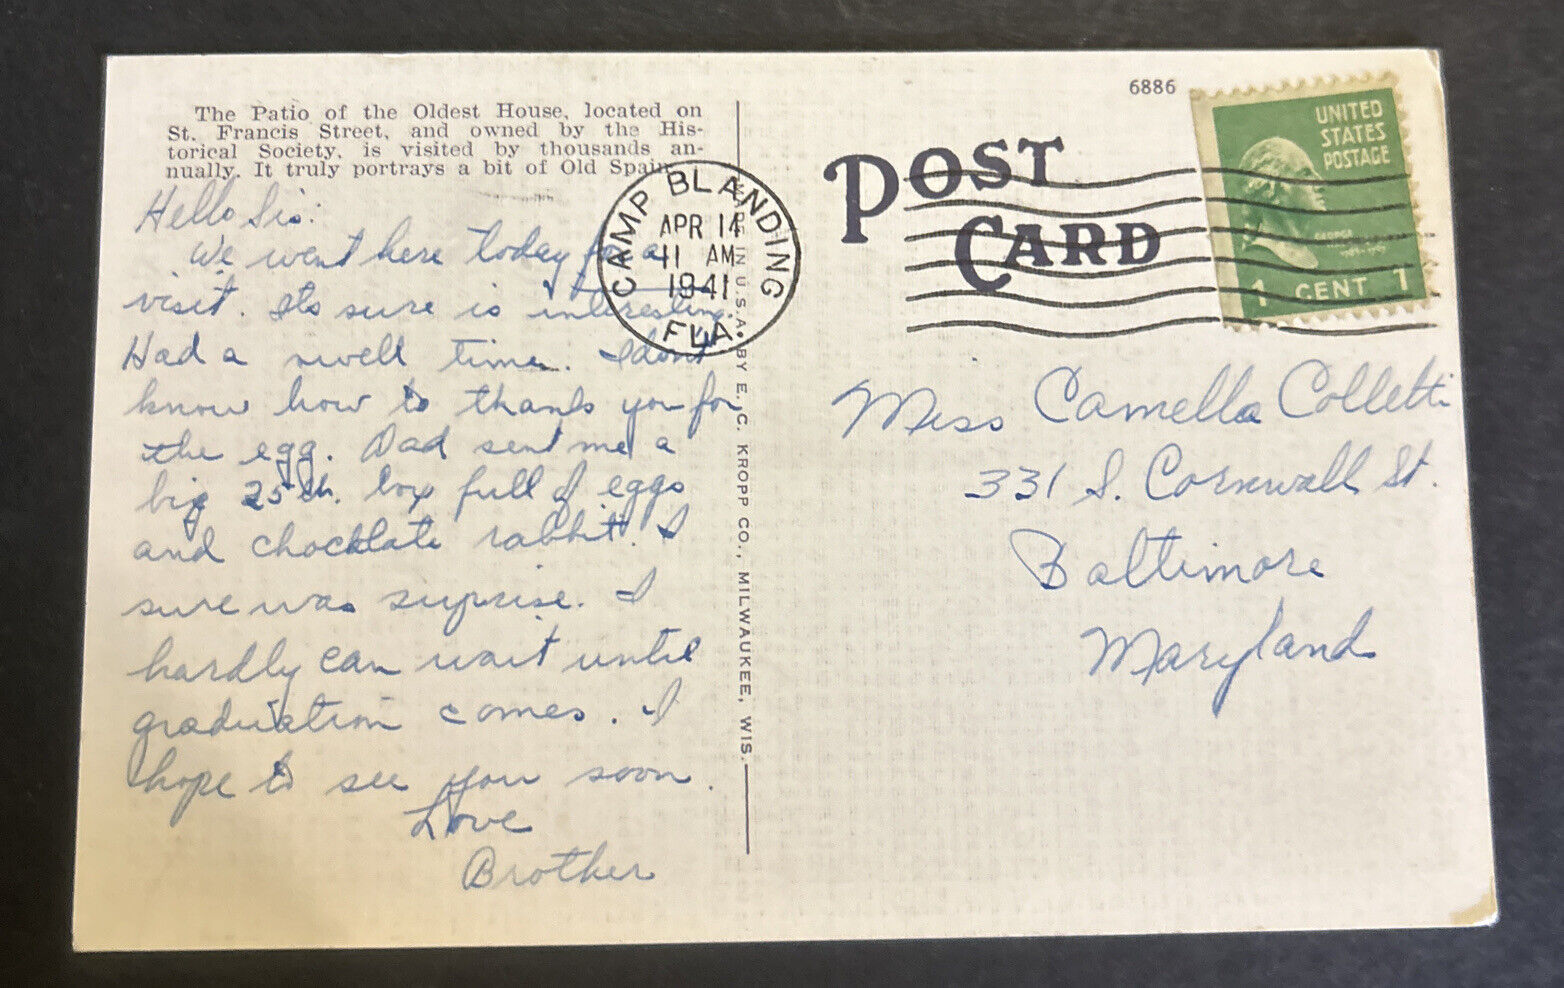 The Patio of the Oldest House, located on
St. Francis Street, and owned by the His-
torical Society, is visited by thousands an-
nually. It truly portrays a bit of Old Spain.
Hello Sis:
We went here today for a
visit. Its sure is interesting.
Had a swell time. I dont
know how to thank you for
the egg. Dad sent me a
big 25 ch. box full of eggs
and chocklate rabbit. I
sure was surprise. I
hardly can wait until
graduation comes. I
hope to see you soon.
Love
Brother
CAMP BLANDING
APR 14
11 AM
1941
FLA.
MADE IN U.S.A. BY E. C. KROPP CO., MILWAUKEE, WIS.
6886
POST
CARD
UNITED
STATES
POSTAGE
GEORGE
WASHINGTON
1 CENT 1
Miss Camella Colletti
331 S. Cornwall St.
Baltimore
Maryland